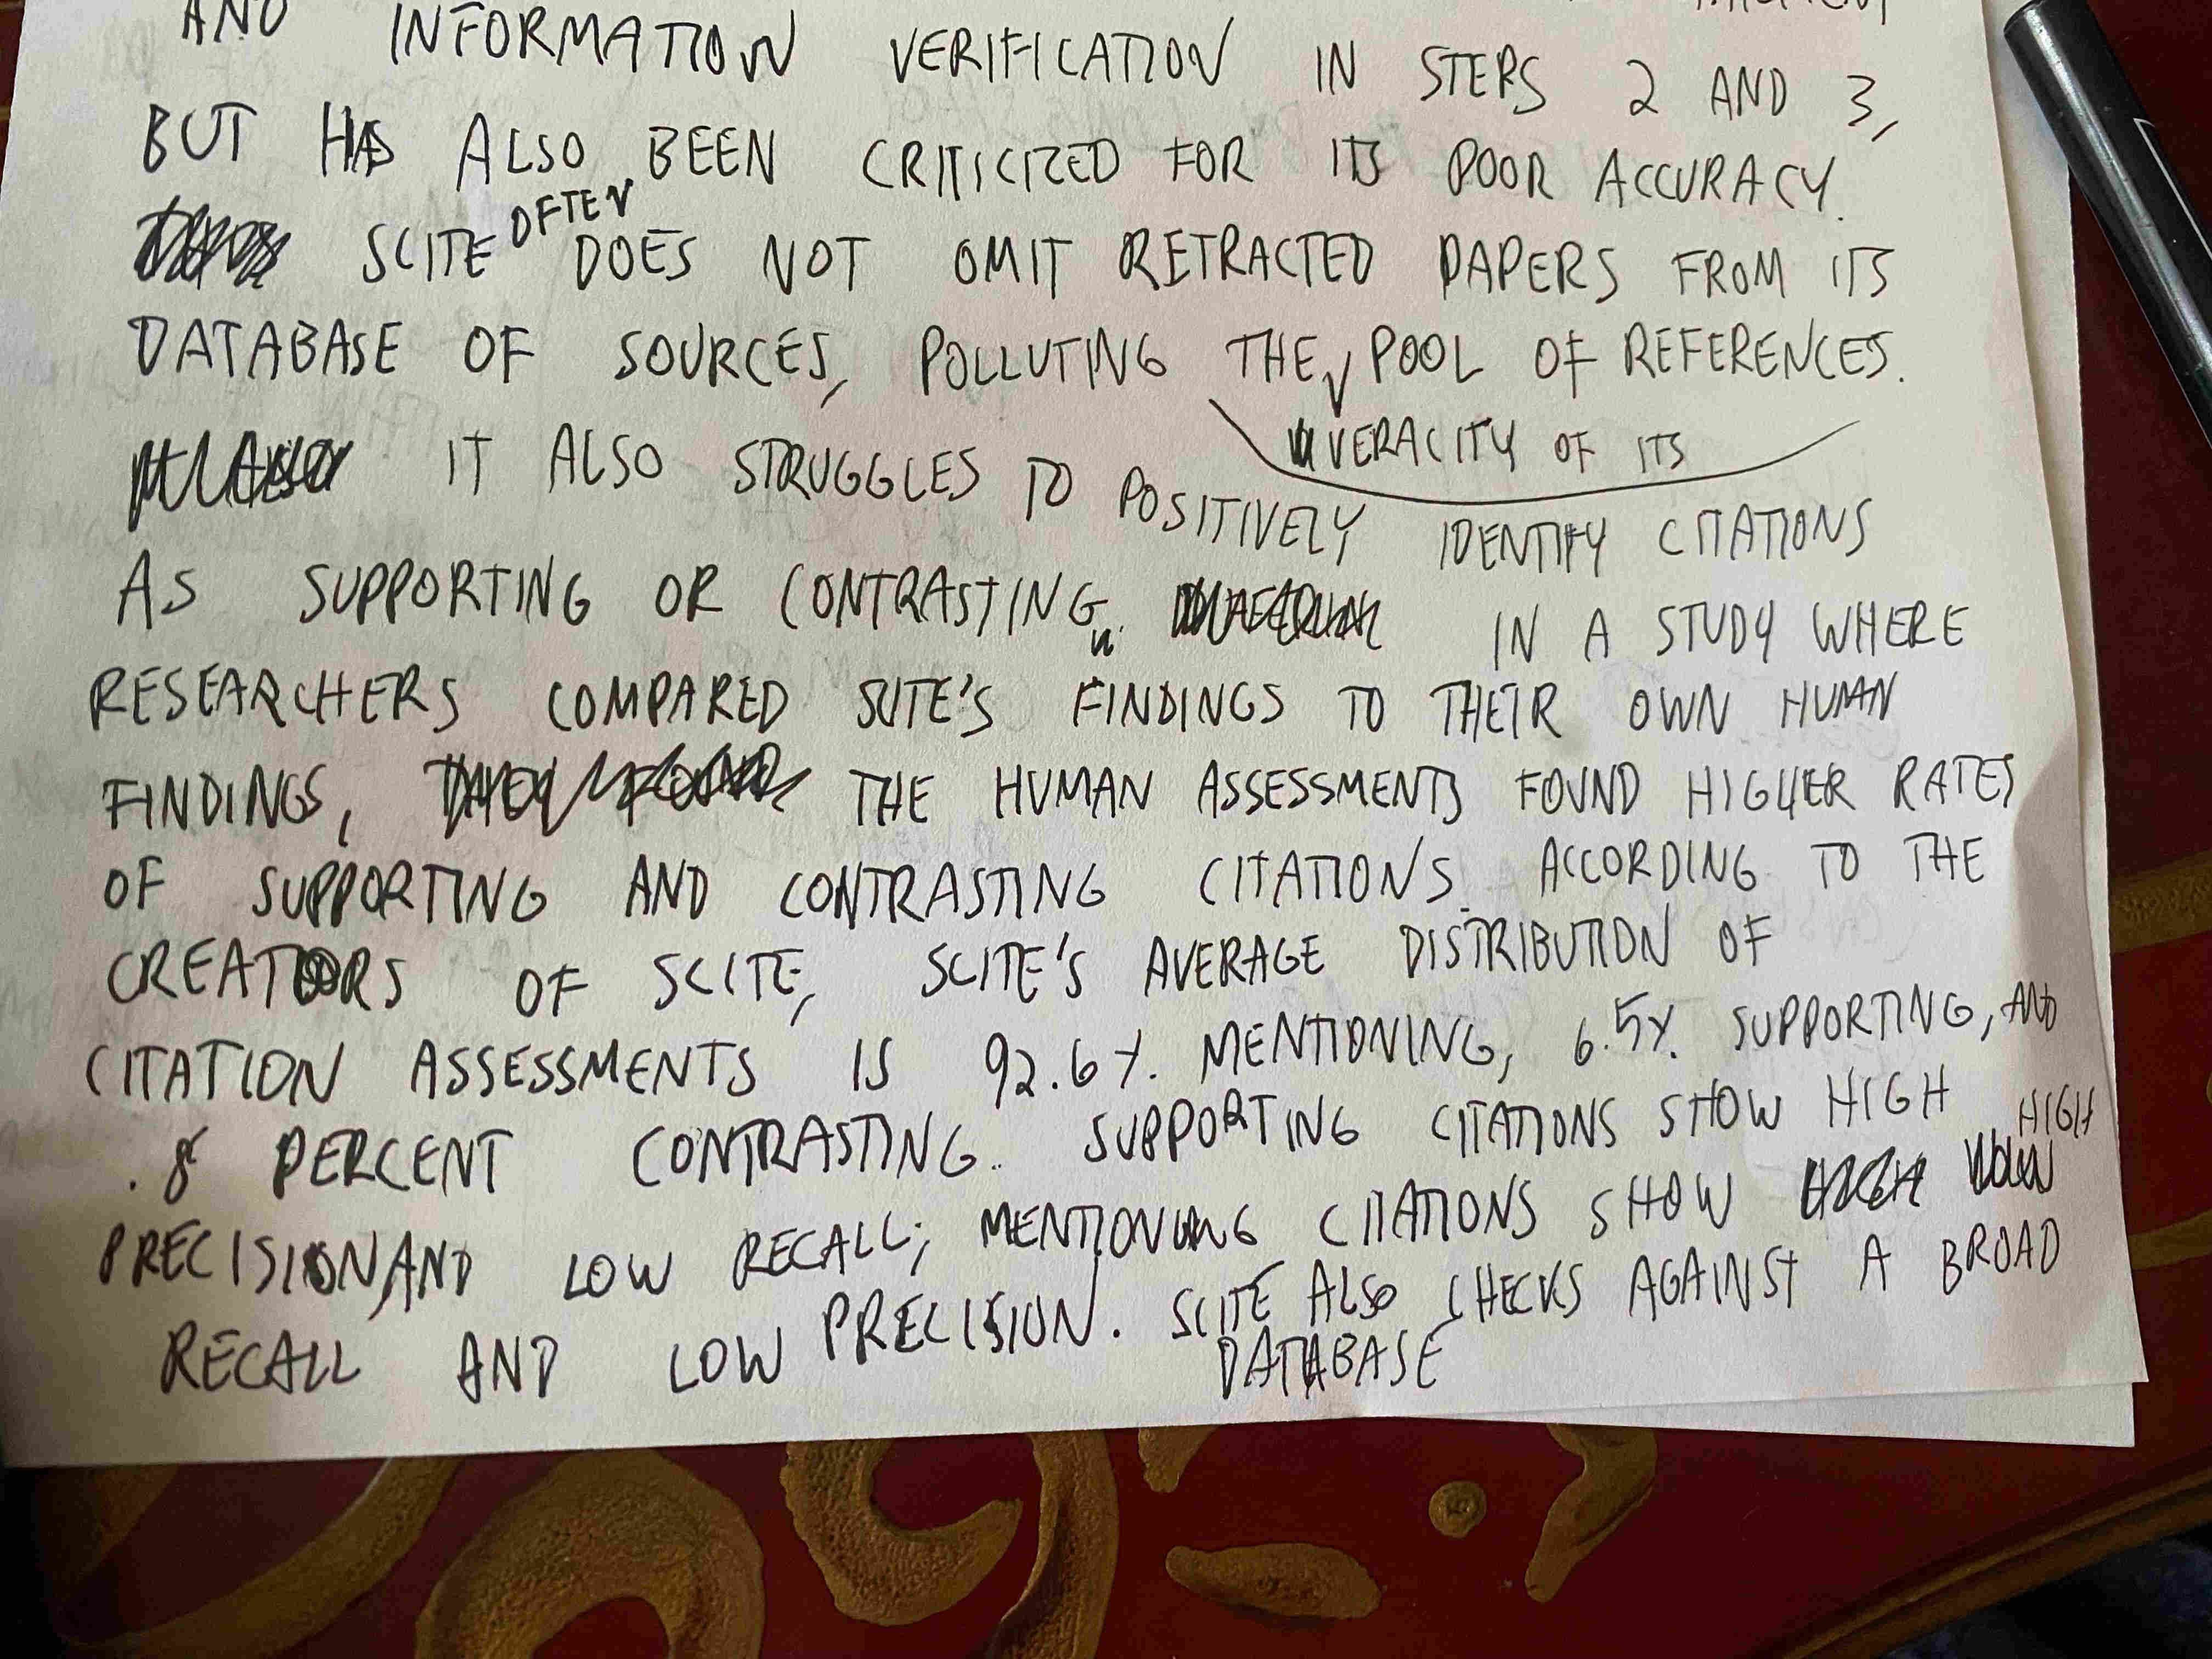 AND INFORMATION VERIFICATION IN STEPS 2 AND 3,
BUT HAS ALSO BEEN CRITICIZED FOR ITS POOR ACCURACY.
SCITE OFTEN DOES NOT OMIT RETRACTED PAPERS FROM ITS
DATABASE OF SOURCES, POLLUTING THE POOL OF REFERENCES.
VERACITY OF ITS
IT ALSO STRUGGLES TO POSITIVELY IDENTIFY CITATIONS
AS SUPPORTING OR CONTRASTING. IN A STUDY WHERE
RESEARCHERS COMPARED SCITE'S FINDINGS TO THEIR OWN HUMAN
FINDINGS, THE HUMAN ASSESSMENTS FOUND HIGHER RATES
OF SUPPORTING AND CONTRASTING CITATIONS. ACCORDING TO THE
CREATORS OF SCITE, SCITE'S AVERAGE DISTRIBUTION OF
CITATION ASSESSMENTS IS 92.6%. MENTIONING, 6.5%. SUPPORTING, AND
.8 PERCENT CONTRASTING. SUPPORTING CITATIONS SHOW HIGH
PRECISION, AND LOW RECALL; MENTIONING CITATIONS SHOW HIGH
RECALL AND LOW PRECISION. SCITE ALSO CHECKS AGAINST A BROAD
DATABASE